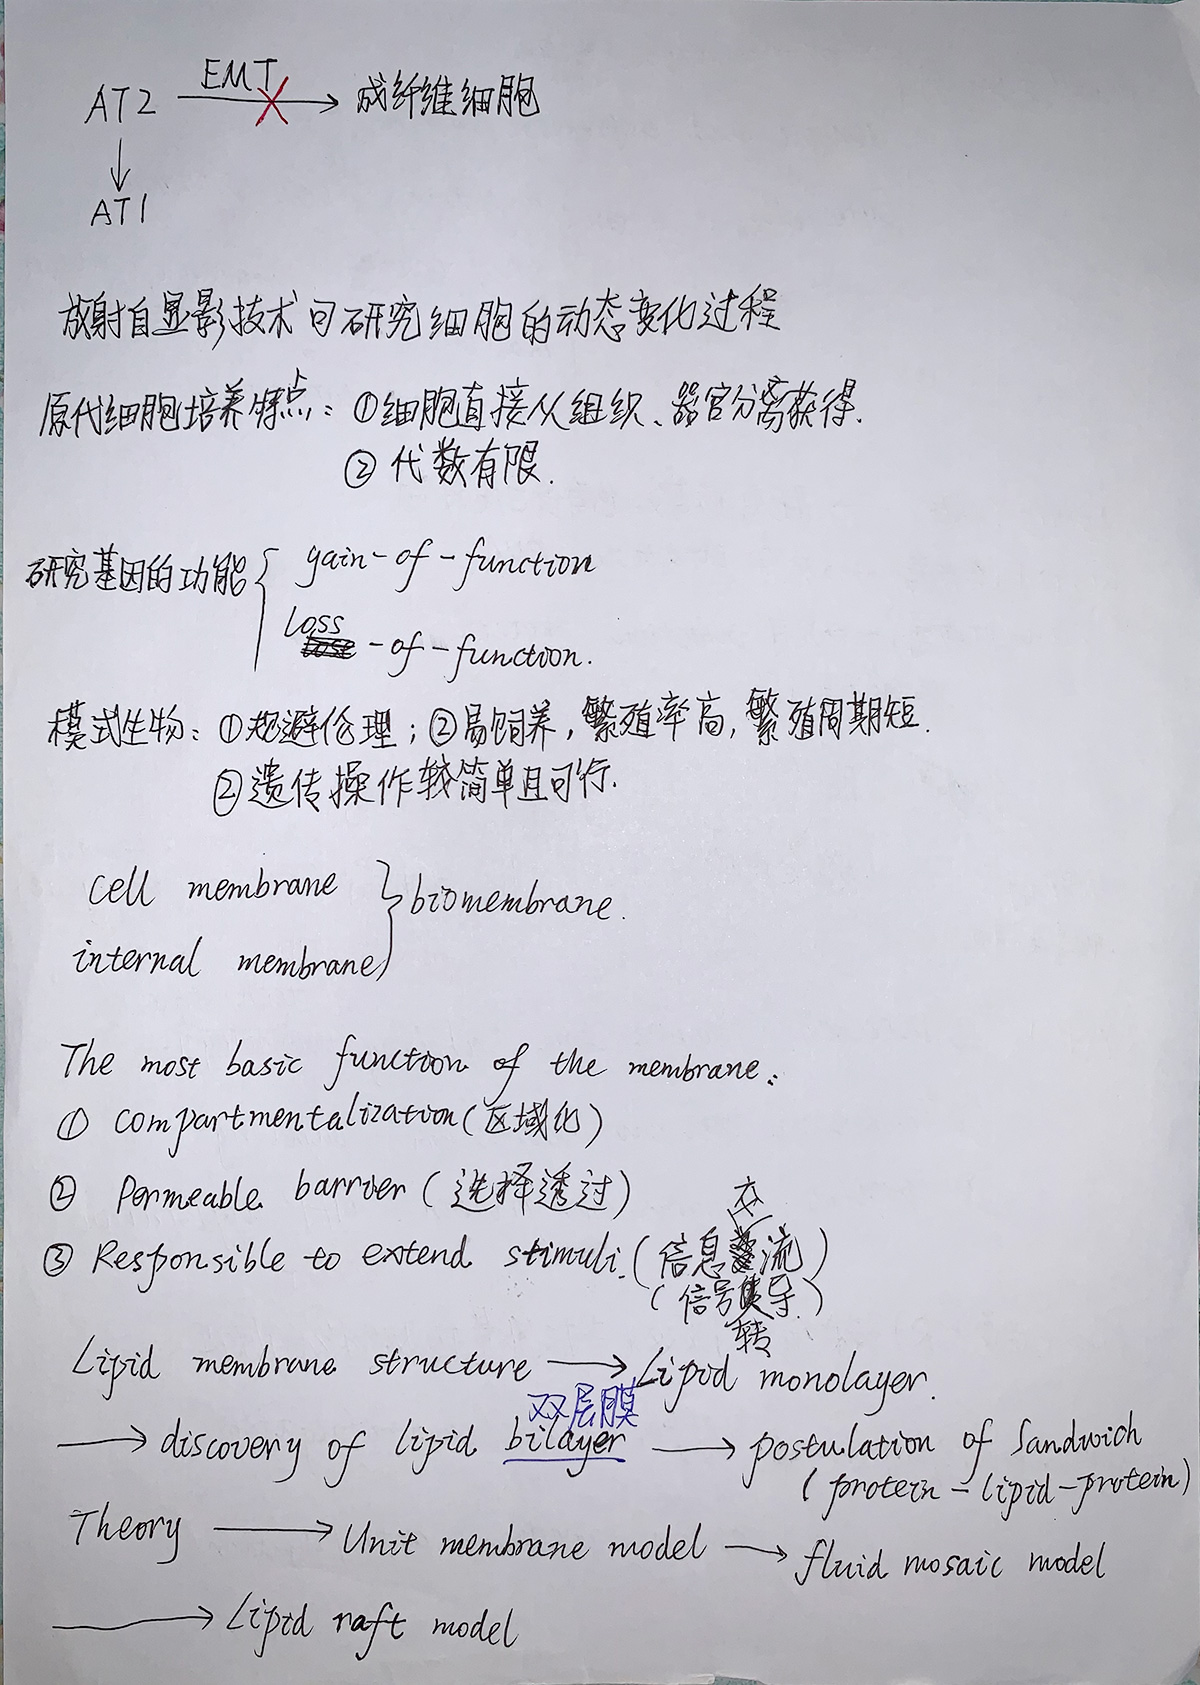 EMT
AT2 → 成纤维细胞
↓
AT1
放射自显影技术可研究细胞的动态变化过程
原代细胞培养特点: ①细胞直接从组织、器官分离获得.
② 代数有限.
研究基因的功能 { gain-of-function
loss-of-function.
模式生物: ①规避伦理; ②易饲养, 繁殖率高, 繁殖周期短.
②遗传操作较简单且可行.
cell membrane } biomembrane.
internal membrane
The most basic function of the membrane:
① compartmentalization (区域化)
② Permeable barrier (选择透过)
交
③ Responsible to extend stimuli. (信息流)
(信号导)
转
Lipid membrane structure → Lipid monolayer.
双层膜
→ discovery of lipid bilayer → postulation of Sandwich
(protein-lipid-protein)
Theory → Unit membrane model → fluid mosaic model
→ Lipid raft model